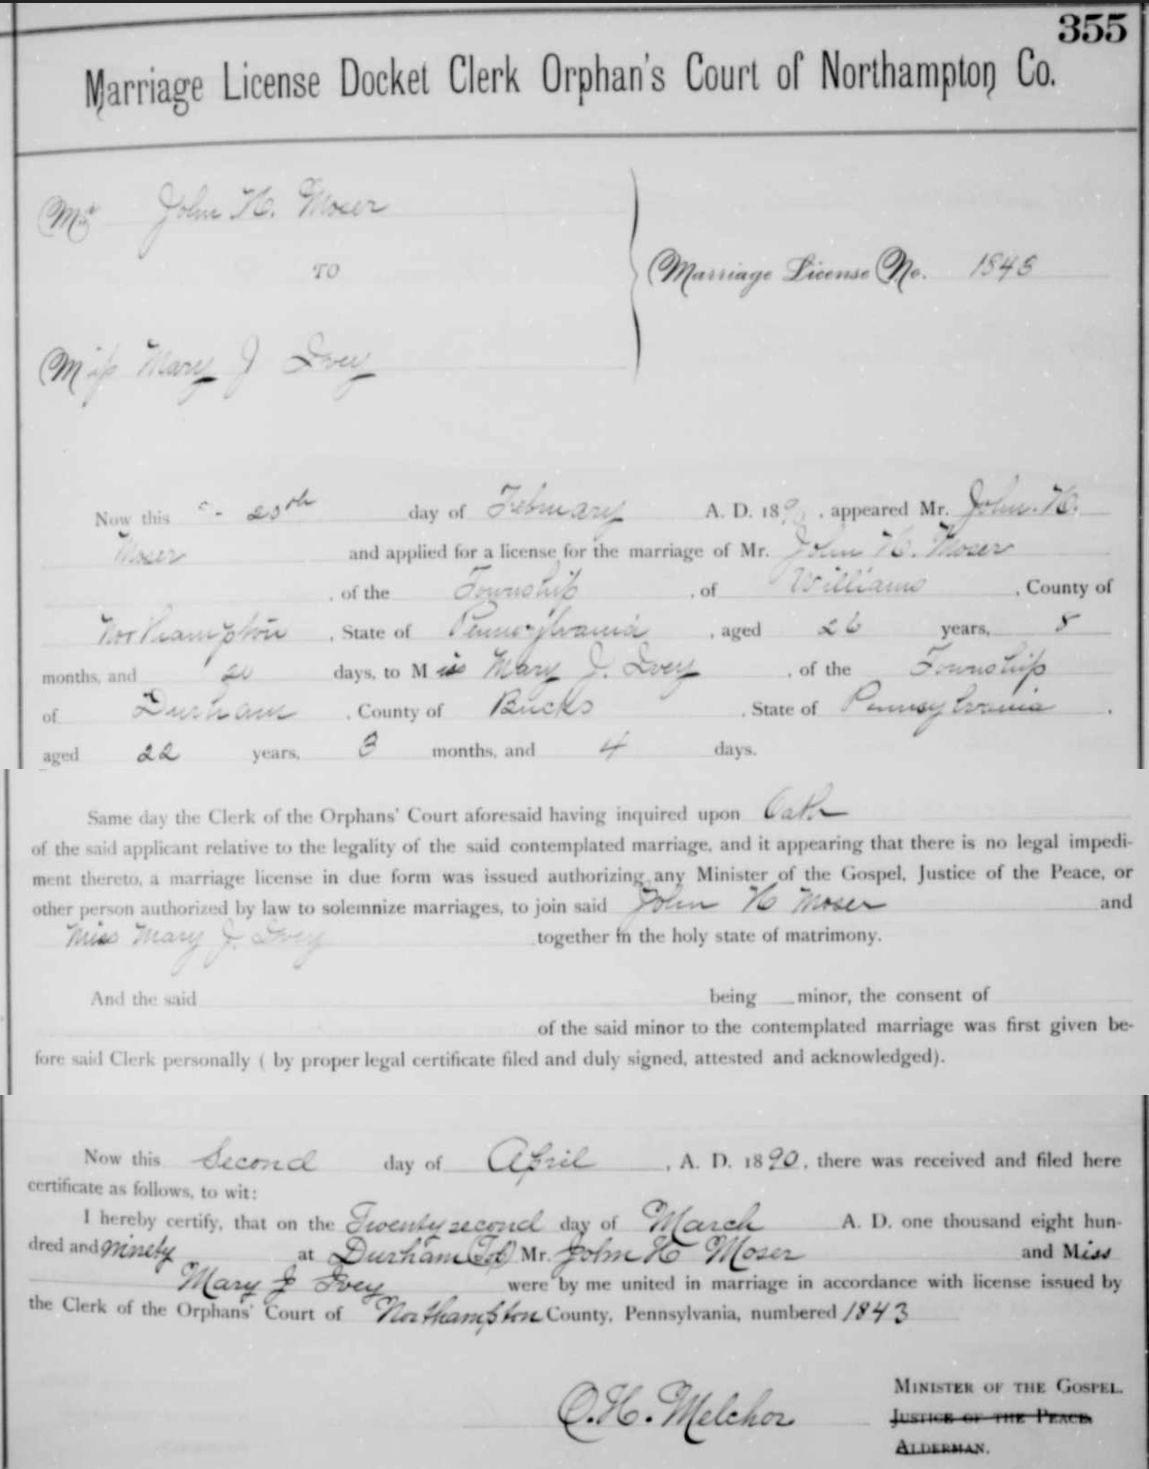 355
Marriage License Docket Clerk Orphan's Court of Northampton Co.
Mr John H. Moser
TO
Marriage License No. 1843
Miss Mary J Ivey
Now this 20th day of February A. D. 1890, appeared Mr. John H.
Moser and applied for a license for the marriage of Mr. John H. Moser
, of the Township , of Williams , County of
Northampton , State of Pennsylvania , aged 26 years, 8
months, and 20 days, to Miss Mary J. Ivey , of the Township
of Durham , County of Bucks , State of Pennsylvania .
aged 22 years, 3 months, and 4 days.
Same day the Clerk of the Orphans' Court aforesaid having inquired upon Oath
of the said applicant relative to the legality of the said contemplated marriage, and it appearing that there is no legal impedi-
ment thereto, a marriage license in due form was issued authorizing any Minister of the Gospel, Justice of the Peace, or
other person authorized by law to solemnize marriages, to join said John H Moser and
Miss Mary J. Ivey together in the holy state of matrimony.
And the said being minor, the consent of
of the said minor to the contemplated marriage was first given be-
fore said Clerk personally ( by proper legal certificate filed and duly signed, attested and acknowledged).
Now this Second day of April , A. D. 1890, there was received and filed here
certificate as follows, to wit:
I hereby certify, that on the Twenty second day of March A. D. one thousand eight hun-
dred and ninety at Durham (Tp) Mr. John H Moser and Miss
Mary J Ivey were by me united in marriage in accordance with license issued by
the Clerk of the Orphans' Court of Northampton County, Pennsylvania, numbered 1843
O. H. Melchor
MINISTER OF THE GOSPEL.
JUSTICE OF THE PEACE.
ALDERMAN.